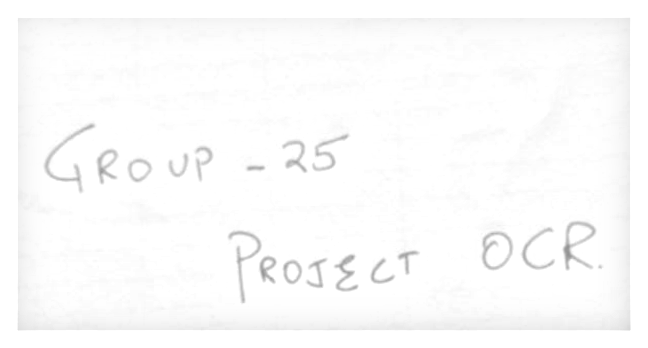 GROUP - 25
PROJECT OCR.